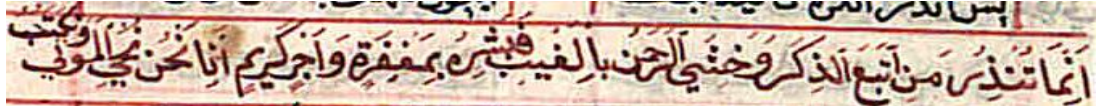 انما تنذر من اتبع الذكر وخشي الرحمن بالغيب فبشره بمغفرة واجر كريم انا نحن نحي الموتي ونكتب